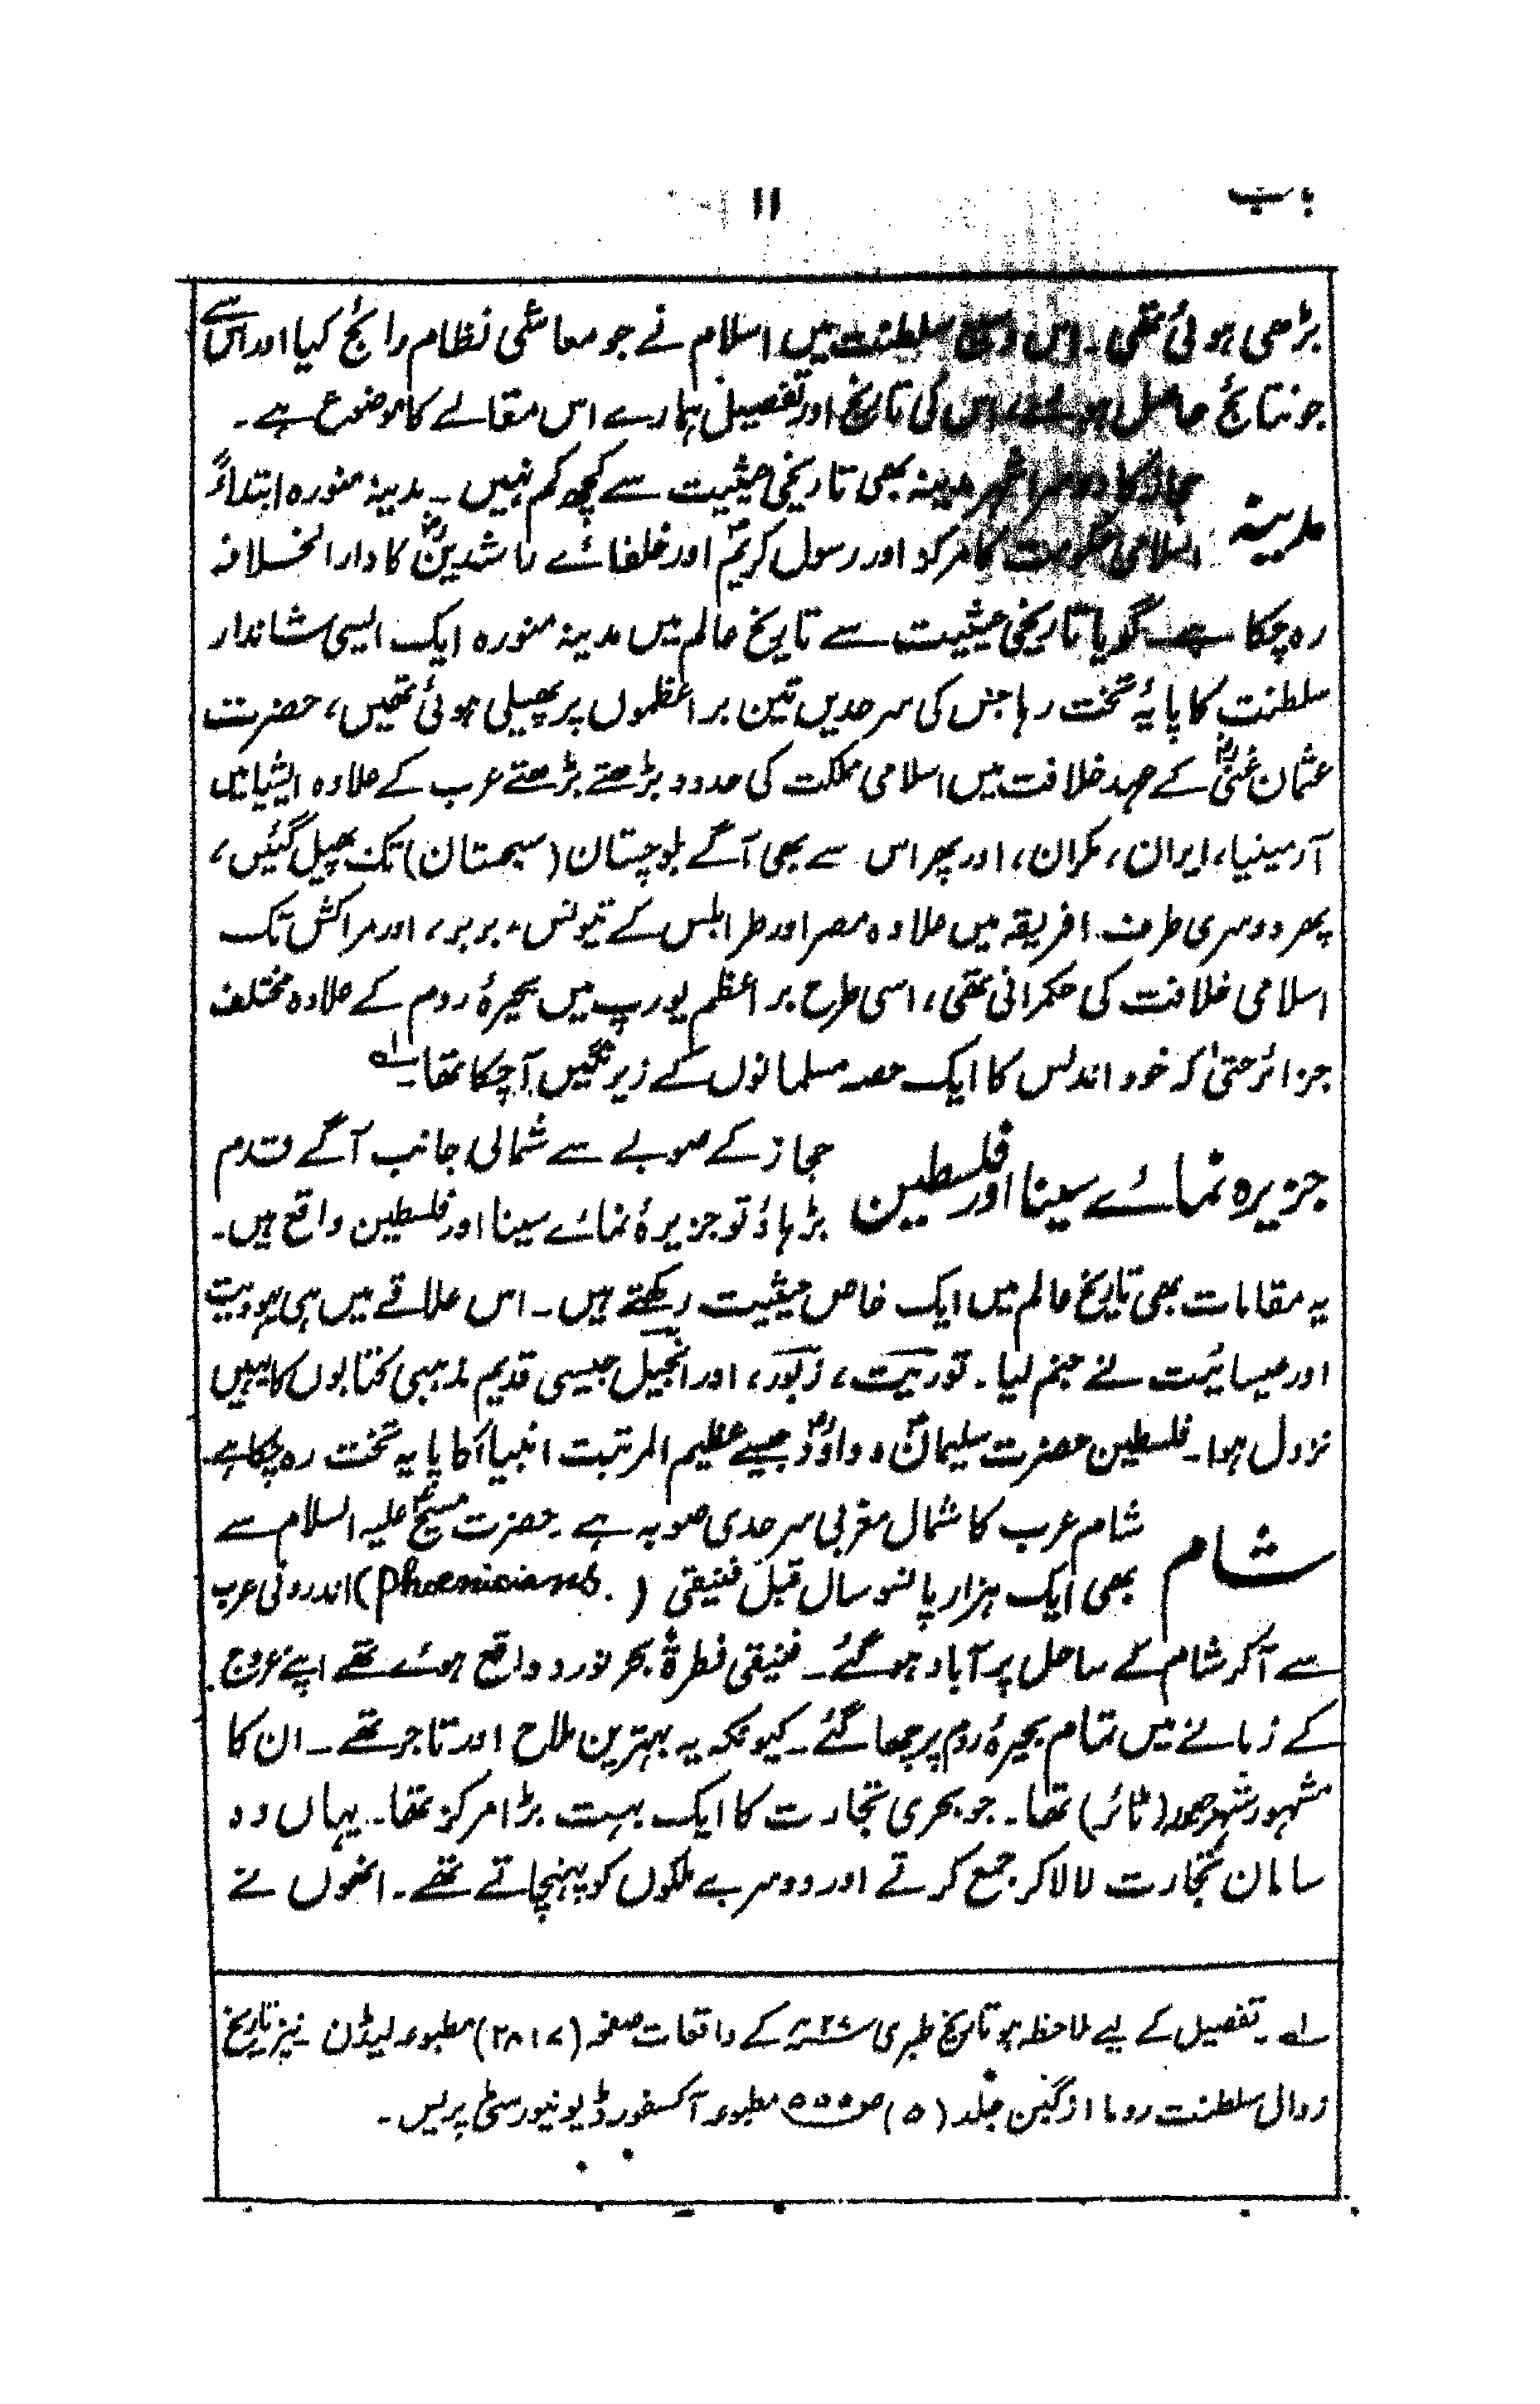 باب ۱۱
بڑھی ہوئی تھی۔ اس وسیع سلطنت میں اسلام نے جو معاشی نظام رائج کیا اور اس سے
جو نتائج حاصل ہوئے، اس کی تاریخ اور تفصیل ہمارے اس مقالے کا موضوع ہے۔
مدینہ
حجاز کا دوسرا شہر مدینہ بھی تاریخی حیثیت سے کچھ کم نہیں۔ مدینہ منورہ ابتداءً
اسلامی حکومت کا مرکز اور رسول کریمؐ اور خلفائے راشدینؓ کا دارالخلافہ
رہ چکا ہے گویا تاریخی حیثیت سے تاریخ عالم میں مدینہ منورہ ایک ایسی شاندار
سلطنت کا پایۂ تخت رہا جس کی سرحدیں تین براعظموں پر پھیلی ہوئی تھیں، حضرت
عثمان غنیؓ کے عہد خلافت میں اسلامی مملکت کی حدود بڑھتے بڑھتے عرب کے علاوہ ایشیا میں
آرمینیا، ایران، مکران، اور پھر اس سے بھی آگے بلوچستان (سجستان) تک پھیل گئیں،
پھر دوسری طرف افریقہ میں علاوہ مصر اور طرابلس کے تیونس، بربر، اور مراکش تک
اسلامی خلافت کی حکمرانی تھی، اسی طرح براعظم یورپ میں بحیرۂ روم کے علاوہ مختلف
جزائر حتیٰ کہ خود اندلس کا ایک حصہ مسلمانوں کے زیر نگیں آچکا تھا۔ ؎۱
جزیرہ نمائے سینا اور فلسطین
حجاز کے صوبے سے شمالی جانب آگے قدم
بڑہاؤ تو جزیرۂ نمائے سینا اور فلسطین واقع ہیں۔
یہ مقامات بھی تاریخ عالم میں ایک خاص حیثیت رکھتے ہیں۔ اس علاقے میں ہی یہودیت
اور عیسائیت نے جنم لیا۔ توریت، زبور، اور انجیل جیسی قدیم مذہبی کتابوں کا یہیں
نزول ہوا۔ فلسطین حضرت سلیمانؑ و داؤدؑ جیسے عظیم المرتبت انبیا کا پایہ تخت رہ چکا ہے۔
شام
شام عرب کا شمال مغربی سرحدی صوبہ ہے۔ حضرت مسیحؑ علیہ السلام سے
بھی ایک ہزار پانسو سال قبل فنیقی (Phoenicians.) اندرونی عرب
سے آکر شام کے ساحل پر آباد ہوگئے۔ فنیقی فطرۃً بحر نورد واقع ہوئے تھے اپنے عروج
کے زمانے میں تمام بحیرۂ روم پر چھا گئے۔ کیونکہ یہ بہترین ملاح اور تاجر تھے۔ ان کا
مشہور شہر صور (ٹائر) تھا۔ جو بحری تجارت کا ایک بہت بڑا مرکز تھا۔ یہاں وہ
سامان تجارت لالا کر جمع کرتے اور دوسرے ملکوں کو پہنچاتے تھے۔ انھوں نے
؎۱۔ تفصیل کے لیے ملاحظہ ہو تاریخ طبری ۲۷ھ کے واقعات صفحہ (۲۸۱۷) مطبوعہ لیڈن نیز تاریخ
زوال سلطنت روما از گبن جلد (۵) ص ۵۵۵ مطبوعہ آکسفورڈ یونیورسٹی پریس۔